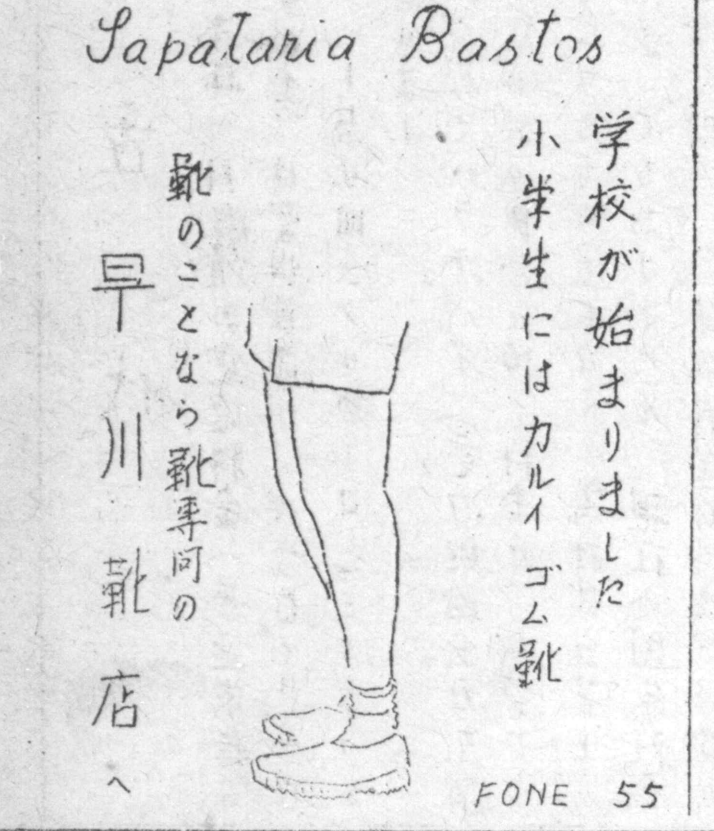 Sapataria Bastos
学校が始まりました
小学生にはカルイゴム靴
靴のことなら靴専问の
早川靴店へ
FONE 55